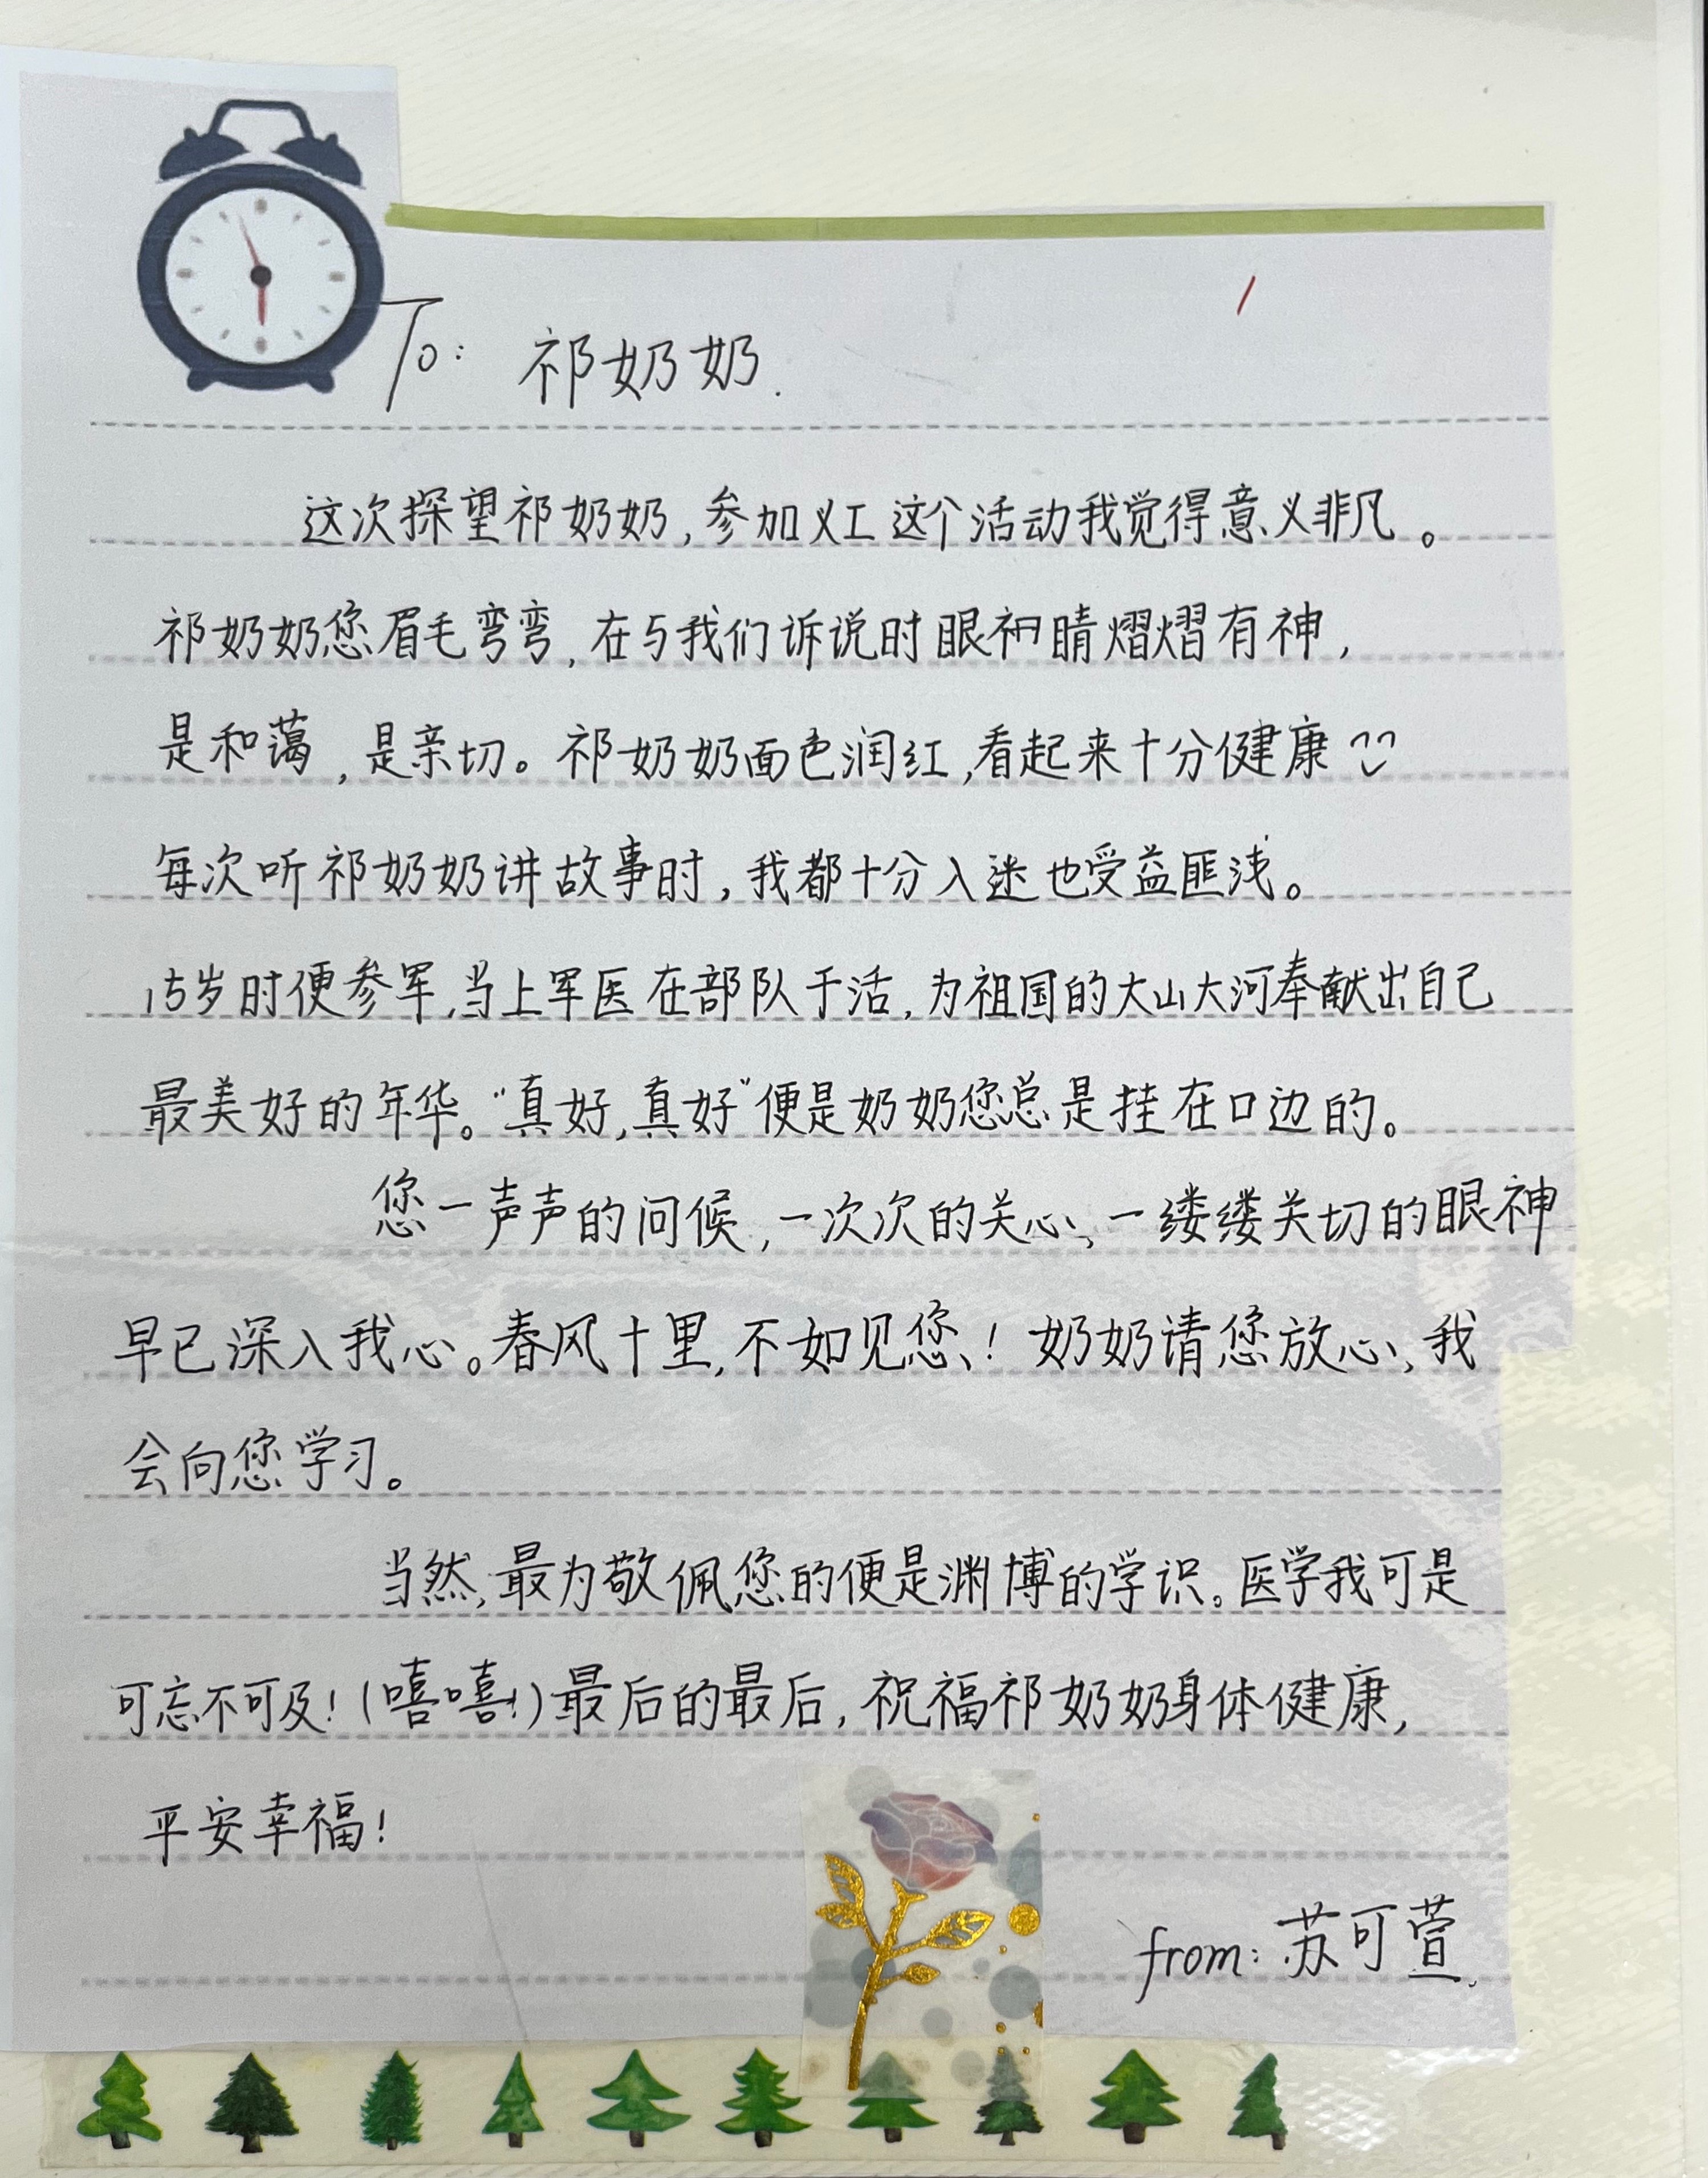 To: 祁奶奶.
这次探望祁奶奶,参加义工这个活动我觉得意义非凡。
祁奶奶您眉毛弯弯,在与我们诉说时眼睛熠熠有神,
是和蔼,是亲切。祁奶奶面色润红,看起来十分健康
每次听祁奶奶讲故事时,我都十分入迷也受益匪浅。
15岁时便参军,当上军医在部队干活,为祖国的大山大河奉献出自己
最美好的年华。“真好,真好”便是奶奶您总是挂在口边的。
您一声声的问候,一次次的关心、一缕缕关切的眼神
早已深入我心。春风十里,不如见您!奶奶请您放心,我
会向您学习。
当然,最为敬佩您的便是渊博的学识。医学我可是
可忘不可及!(嘻嘻!)最后的最后,祝福祁奶奶身体健康,
平安幸福!
from:苏可萱.